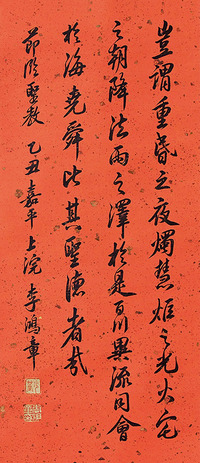 豈謂重昏之夜燭慧炬之光火宅
之朝降法雨之澤於是百川異流同會
於海堯舜比其聖德者哉
節臨聖教 乙丑嘉平上浣 李鴻章